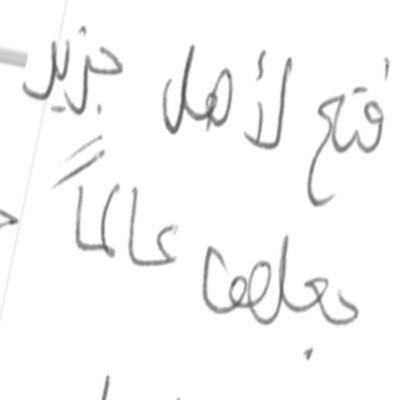 فتح لأهل جزير
جعلها عالماً